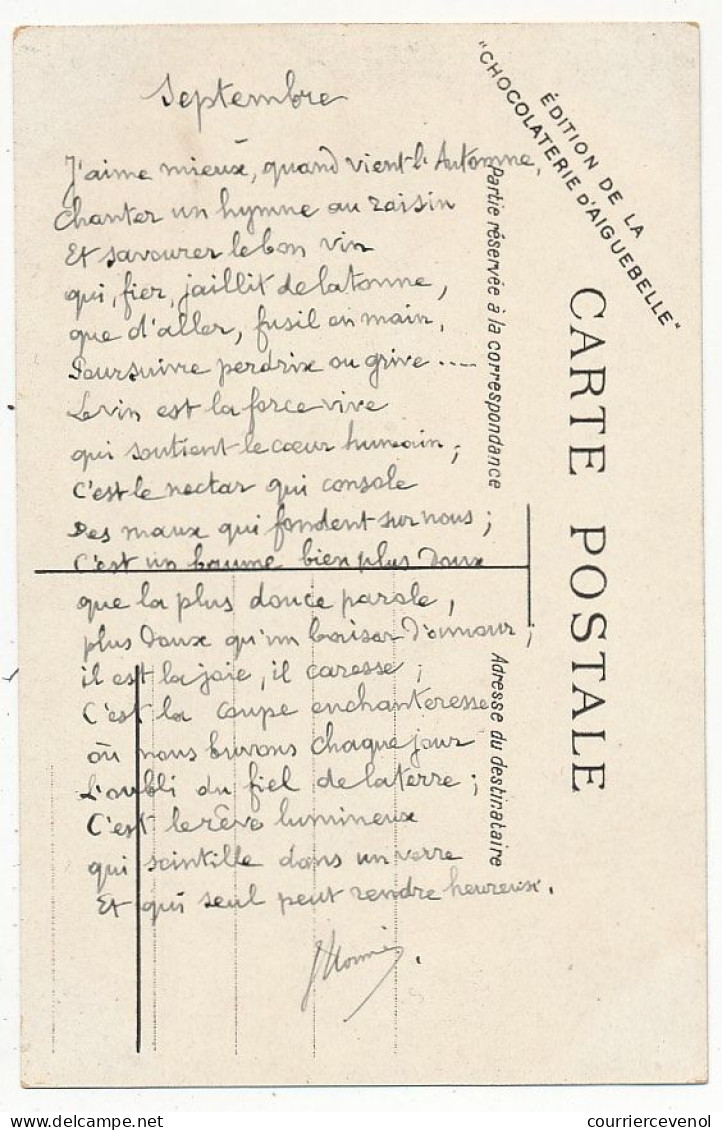 Septembre
J'aime mieux, quand vient l'Automne,
Chanter un hymne au raisin
Et savourer le bon vin
qui, fier, jaillit de la tonne,
que d'aller, fusil en main,
Poursuivre perdrix ou grive ....
Le vin est la force vive
qui soutient le cœur humain ;
C'est le nectar qui console
Des maux qui fondent sur nous ;
C'est un baume bien plus doux
que la plus douce parole,
plus doux qu'un baiser d'amour ;
il est la joie, il caresse ;
C'est la coupe enchanteresse
où nous buvons chaque jour
L'oubli du fiel de la terre ;
C'est le rêve lumineux
qui scintille dans un verre
Et qui seul peut rendre heureux.
ÉDITION DE LA
"CHOCOLATERIE D'AIGUEBELLE"
CARTE POSTALE
Partie réservée à la correspondance
Adresse du destinataire
courriercevenol